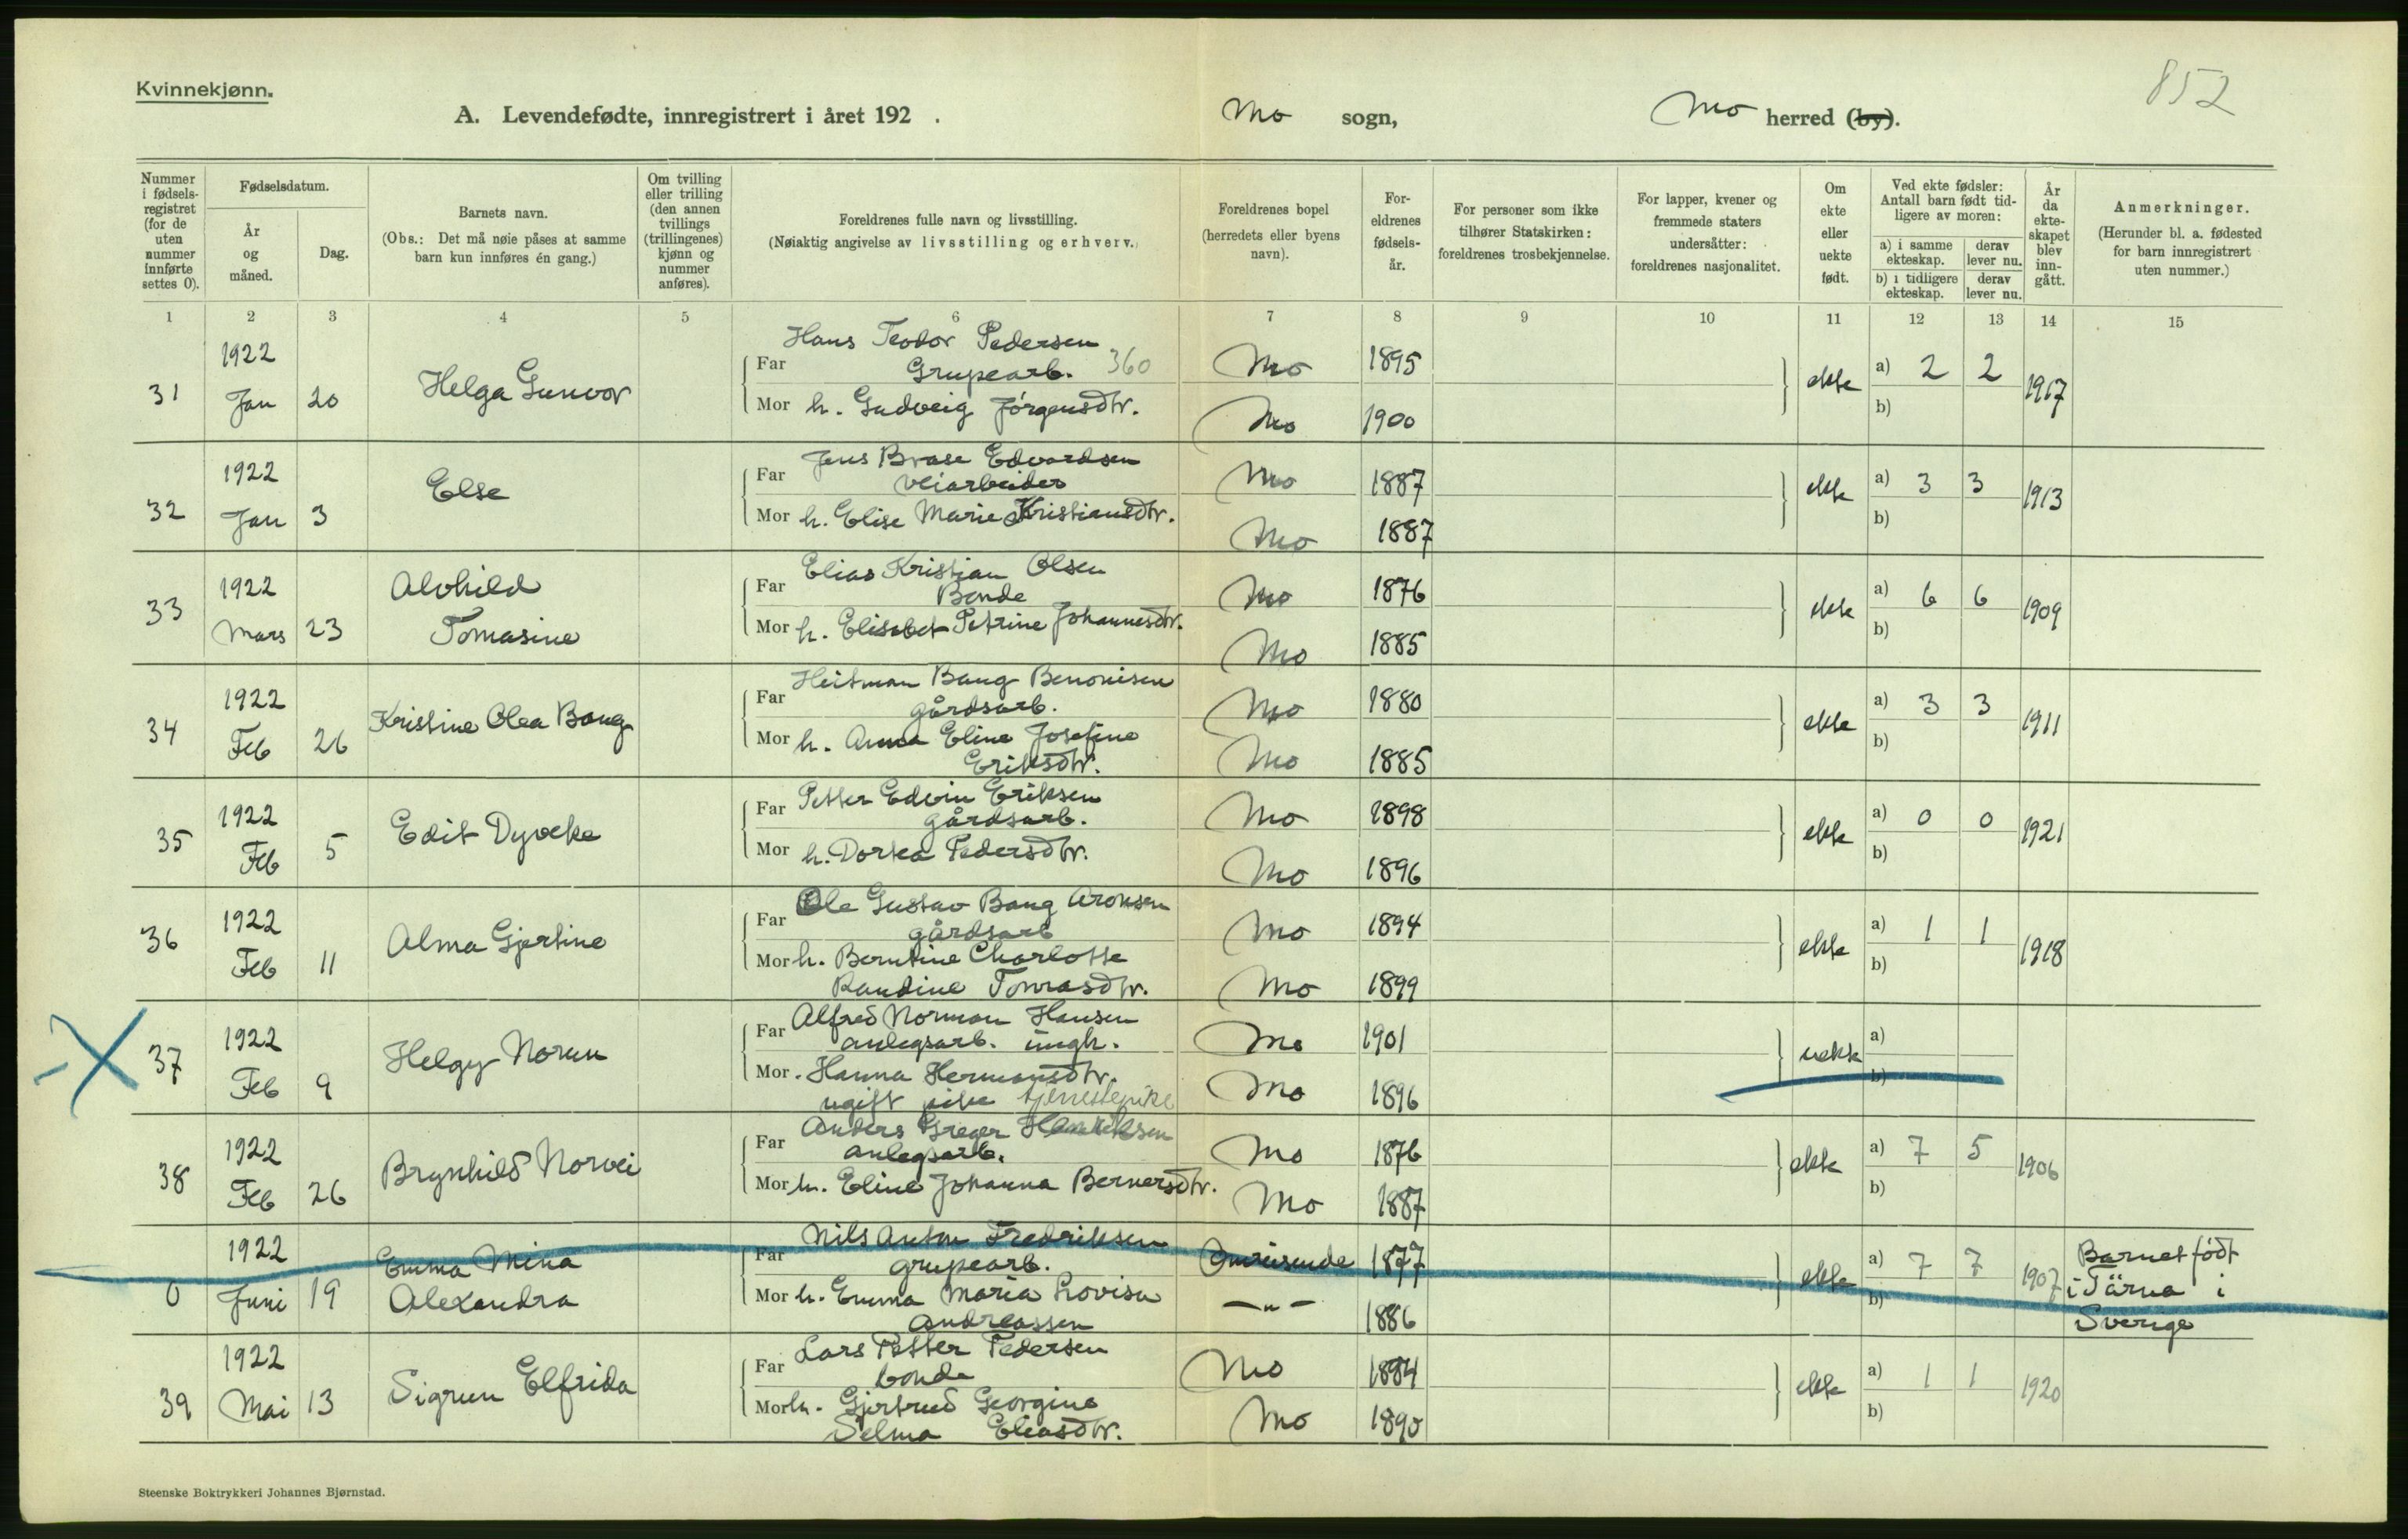 Kvinnekjønn.
852
A. Levendefødte, innregistrert i året 192 . Mo sogn, Mo herred (by).
Nummer i fødselsregistret (for de uten nummer innførte settes 0).
Fødselsdatum.
År og måned.
Dag.
Barnets navn.
(Obs.: Det må nøie påses at samme barn kun innføres én gang.)
Om tvilling eller trilling (den annen tvillings (trillingenes) kjønn og nummer anføres).
Foreldrenes fulle navn og livsstilling.
(Nøiaktig angivelse av livsstilling og erhverv.)
Foreldrenes bopel (herredets eller byens navn).
Foreldrenes fødselsår.
For personer som ikke tilhører Statskirken: foreldrenes trosbekjennelse.
For lapper, kvener og fremmede staters undersåtter: foreldrenes nasjonalitet.
Om ekte eller uekte født.
Ved ekte fødsler: Antall barn født tidligere av moren:
a) i samme ekteskap. derav lever nu.
b) i tidligere ekteskap. derav lever nu.
År da ekteskapet blev inngått.
Anmerkninger.
(Herunder bl. a. fødested for barn innregistrert uten nummer.)
1 2 3 4 5 6 7 8 9 10 11 12 13 14 15
31 1922 Jan 20 Helga Gunvor
Far Hans Teodor Pedersen
Grupearb. 360 Mo 1895
Mor h. Gudveig Jörgensdtr. Mo 1900
ekte a) 2 2 b) 1917
32 1922 Jan 3 Else
Far Jens Brase Edvardsen
veiarbeider Mo 1887
Mor h. Elise Marie Kristiansdtr. Mo 1887
ekte a) 3 3 b) 1913
33 1922 Mars 23 Alvhild
Tomasine
Far Elias Kristian Olsen
Bonde Mo 1876
Mor h. Elisabet Petrine Johannesdtr. Mo 1885
ekte a) 6 6 b) 1909
34 1922 Feb 26 Kristine Olea Bang
Far Heitman Bang Benonisen
gårdsarb. Mo 1880
Mor h. Anna Eline Josefine
Eriksdtr. Mo 1885
ekte a) 3 3 b) 1911
35 1922 Feb 5 Edit Dyveke
Far Petter Edvin Eriksen
gårdsarb. Mo 1898
Mor h. Dortea Pedersdtr. Mo 1896
ekte a) 0 0 b) 1921
36 1922 Feb 11 Alma Gjertine
Far Ole Gustav Bang Aronsen
gårdsarb Mo 1894
Mor h. Berntine Charlotte
Randine Tomasdtr. Mo 1899
ekte a) 1 1 b) 1918
37 1922 Feb 9 Helgy Norun
Far Alfred Norman Hansen
anlegsarb. ungk. Mo 1901
Mor. Hanna Hermansdtr.
ugift pike tjenestepike Mo 1896
uekte a) b)
38 1922 Feb 26 Brynhild Norvei
Far Anders Greger Henriksen
anlegsarb. Mo 1876
Mor h. Eline Johanna Bernersdtr. Mo 1887
ekte a) 7 5 b) 1906
0 1922 Juni 19 Emma Mina
Alexandra
Far Nils Anton Fredriksen
grupearb. Omreisende 1877
Mor h. Emma Maria Lovisa
Andreassen —"— 1886
ekte a) 7 7 b) 1907
Barnet födt
i Tärna i
Sverige
39 1922 Mai 13 Sigrun Elfrida
Far Lars Petter Pedersen
bonde Mo 1894
Mor h. Gjertrud Georgine
Selma Eliasdtr. Mo 1890
ekte a) 1 1 b) 1920
Steenske Boktrykkeri Johannes Bjørnstad.